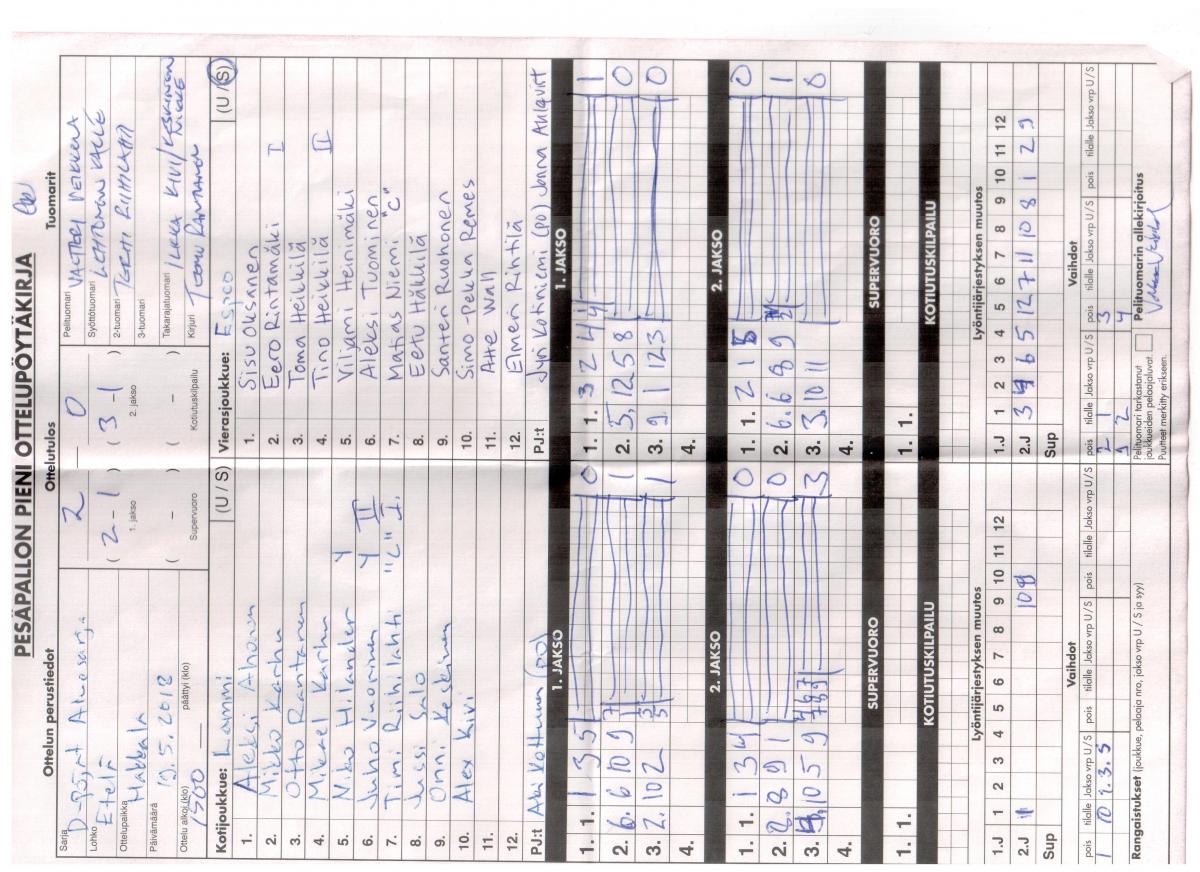 PESÄPALLON PIENI OTTELUPÖYTÄKIRJA
Ottelun perustiedot
Sarja D-pojat Aluesarja
Lohko Etelä
Ottelupaikka Hakkala
Päivämäärä 19.5.2012
Ottelu alkoi (klo) 1500 päättyi (klo)
Ottelutulos
2 — 0
( 2 - 1 ) ( 3 - 1 )
1. jakso 2. jakso
( - ) ( - )
Supervuoro Kotiutuskilpailu
Tuomarit
Pelituomari VALTTERI VEKKELÄ
Syöttötuomari LEHTONEN KALLE
2-tuomari TERHI RIIHILAHTI
3-tuomari
Takarajatuomari ILKKA KIVI / KESKINEN
Kirjuri TEEMU RANTANEN
Kotijoukkue: Lammi (U / S)
1. Aleksi Ahonen
2. Mikko Karhu
3. Otto Rantanen
4. Mikael Karhu
5. Niko Hilander
6. Juho Vuorinen II
7. Timi Riihilahti "C" I
8. Jussi Salo
9. Onni Keskinen
10. Alex Kivi
11.
12.
PJ:t Aki Kottunen (PO)
Vierasjoukkue: Espoo (U / S)
1. Sisu Oksanen
2. Eero Rintamäki I
3. Toma Heikkilä
4. Tino Heikkilä II
5. Viljami Heinimäki
6. Aleksi Tuominen
7. Matias Niemi "C"
8. Eetu Häkkilä
9. Santeri Ruohonen
10. Simo-Pekka Remes
11. Atte Wall
12. Elmeri Rintilä
PJ:t Jyri Kotiniemi (PO) Janna Ahlqvist
1. JAKSO
1. 1. 1 3 5 0
2. 6. 6 10 9 1
3. 2. 10 2 1
4.
2. JAKSO
1. 1. 1 3 4 0
2. 8 9 1 0
3. 10 5 9 3
4.
SUPERVUORO
1. 1.
KOTIUTUSKILPAILU
1. JAKSO
1. 1. 3 2 4 4 1
2. 5. 12 5 8 0
3. 9. 1 12 3 0
4.
2. JAKSO
1. 1. 2 1 0
2. 6. 6 8 9 1
3. 3. 10 11 0
4.
SUPERVUORO
1. 1.
KOTIUTUSKILPAILU
Lyöntijärjestyksen muutos
1 2 3 4 5 6 7 8 9 10 11 12
1.J
2.J
Sup
Lyöntijärjestyksen muutos
1 2 3 4 5 6 7 8 9 10 11 12
1.J
2.J 3 4 6 5 12 7 11 10 8 1 2 9
Sup
Vaihdot
pois tilalle Jakso vrp U / S pois tilalle Jakso vrp U / S pois tilalle Jakso vrp U / S
1 10 1. 3. S
Vaihdot
pois tilalle Jakso vrp U / S pois tilalle Jakso vrp U / S pois tilalle Jakso vrp U / S
2 1 3
9 2 4
Rangaistukset (joukkue, pelaaja nro, jakso vrp U / S ja syy)
Pelituomari tarkastanut
joukkueiden pelaajaluvat.
Puutteet merkitty erikseen.
Pelituomarin allekirjoitus